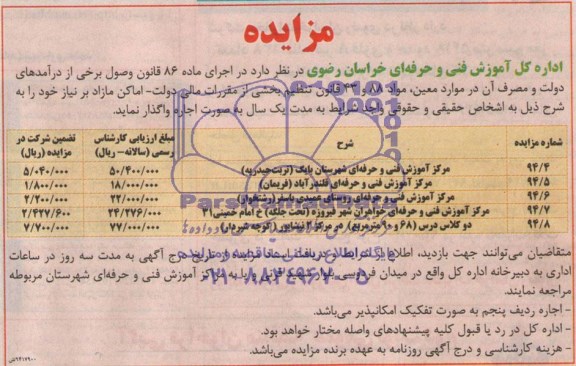 مزایده
اداره کل آموزش فنی و حرفه‌ای خراسان رضوی در نظر دارد در اجرای ماده ۸۶ قانون وصول برخی از درآمدهای
دولت و مصرف آن در موارد معین، مواد ۸۸ و ۴۳ قانون تنظیم بخشی از مقررات مالی دولت- اماکن مازاد بر نیاز خود را به
شرح ذیل به اشخاص حقیقی و حقوقی واجد شرایط به مدت یک سال به صورت اجاره واگذار نماید.
شماره مزایده شرح مبلغ ارزیابی کارشناس رسمی (سالانه- ریال) تضمین شرکت در مزایده (ریال)
۹۴/۴ مرکز آموزش فنی و حرفه‌ای شهرستان بایک (تربت‌حیدریه) ۵۰/۴۰۰/۰۰۰ ۵/۰۴۰/۰۰۰
۹۴/۵ مرکز آموزش فنی و حرفه‌ای قلندرآباد (فریمان) ۱۸/۰۰۰/۰۰۰ ۱/۸۰۰/۰۰۰
۹۴/۶ مرکز آموزش فنی و حرفه‌ای روستای عمیدی یاسفر (رشتخوار) ۲۲/۰۰۰/۰۰۰ ۲/۲۰۰/۰۰۰
۹۴/۷ مرکز آموزش فنی و حرفه‌ای خواهران شهر فیروزه (تخت جلگه) خ امام خمینی ۳۱ ۲۴/۲۷۶/۰۰۰ ۲/۴۲۷/۶۰۰
۹۴/۸ دو کلاس درس (۶۸ و ۹۰ مترمربع) در مرکز ۲ نیشابور (کوچه شیردل) ۷۷/۰۰۰/۰۰۰ ۷/۷۰۰/۰۰۰
متقاضیان می‌توانند جهت بازدید، اطلاع از شرایط و دریافت اسناد مزایده از تاریخ درج آگهی به مدت سه روز در ساعات
اداری به دبیرخانه اداره کل واقع در میدان فردوسی و یا به مراکز آموزش فنی و حرفه‌ای شهرستان مربوطه
مراجعه نمایند.
- اجاره ردیف پنجم به صورت تفکیک امکانپذیر می‌باشد.
- اداره کل در رد یا قبول کلیه پیشنهادهای واصله مختار خواهد بود.
- هزینه کارشناسی و درج آگهی روزنامه به عهده برنده مزایده می‌باشد.
۰۲۱-۸۸۳۴۹۶۷۰-۵